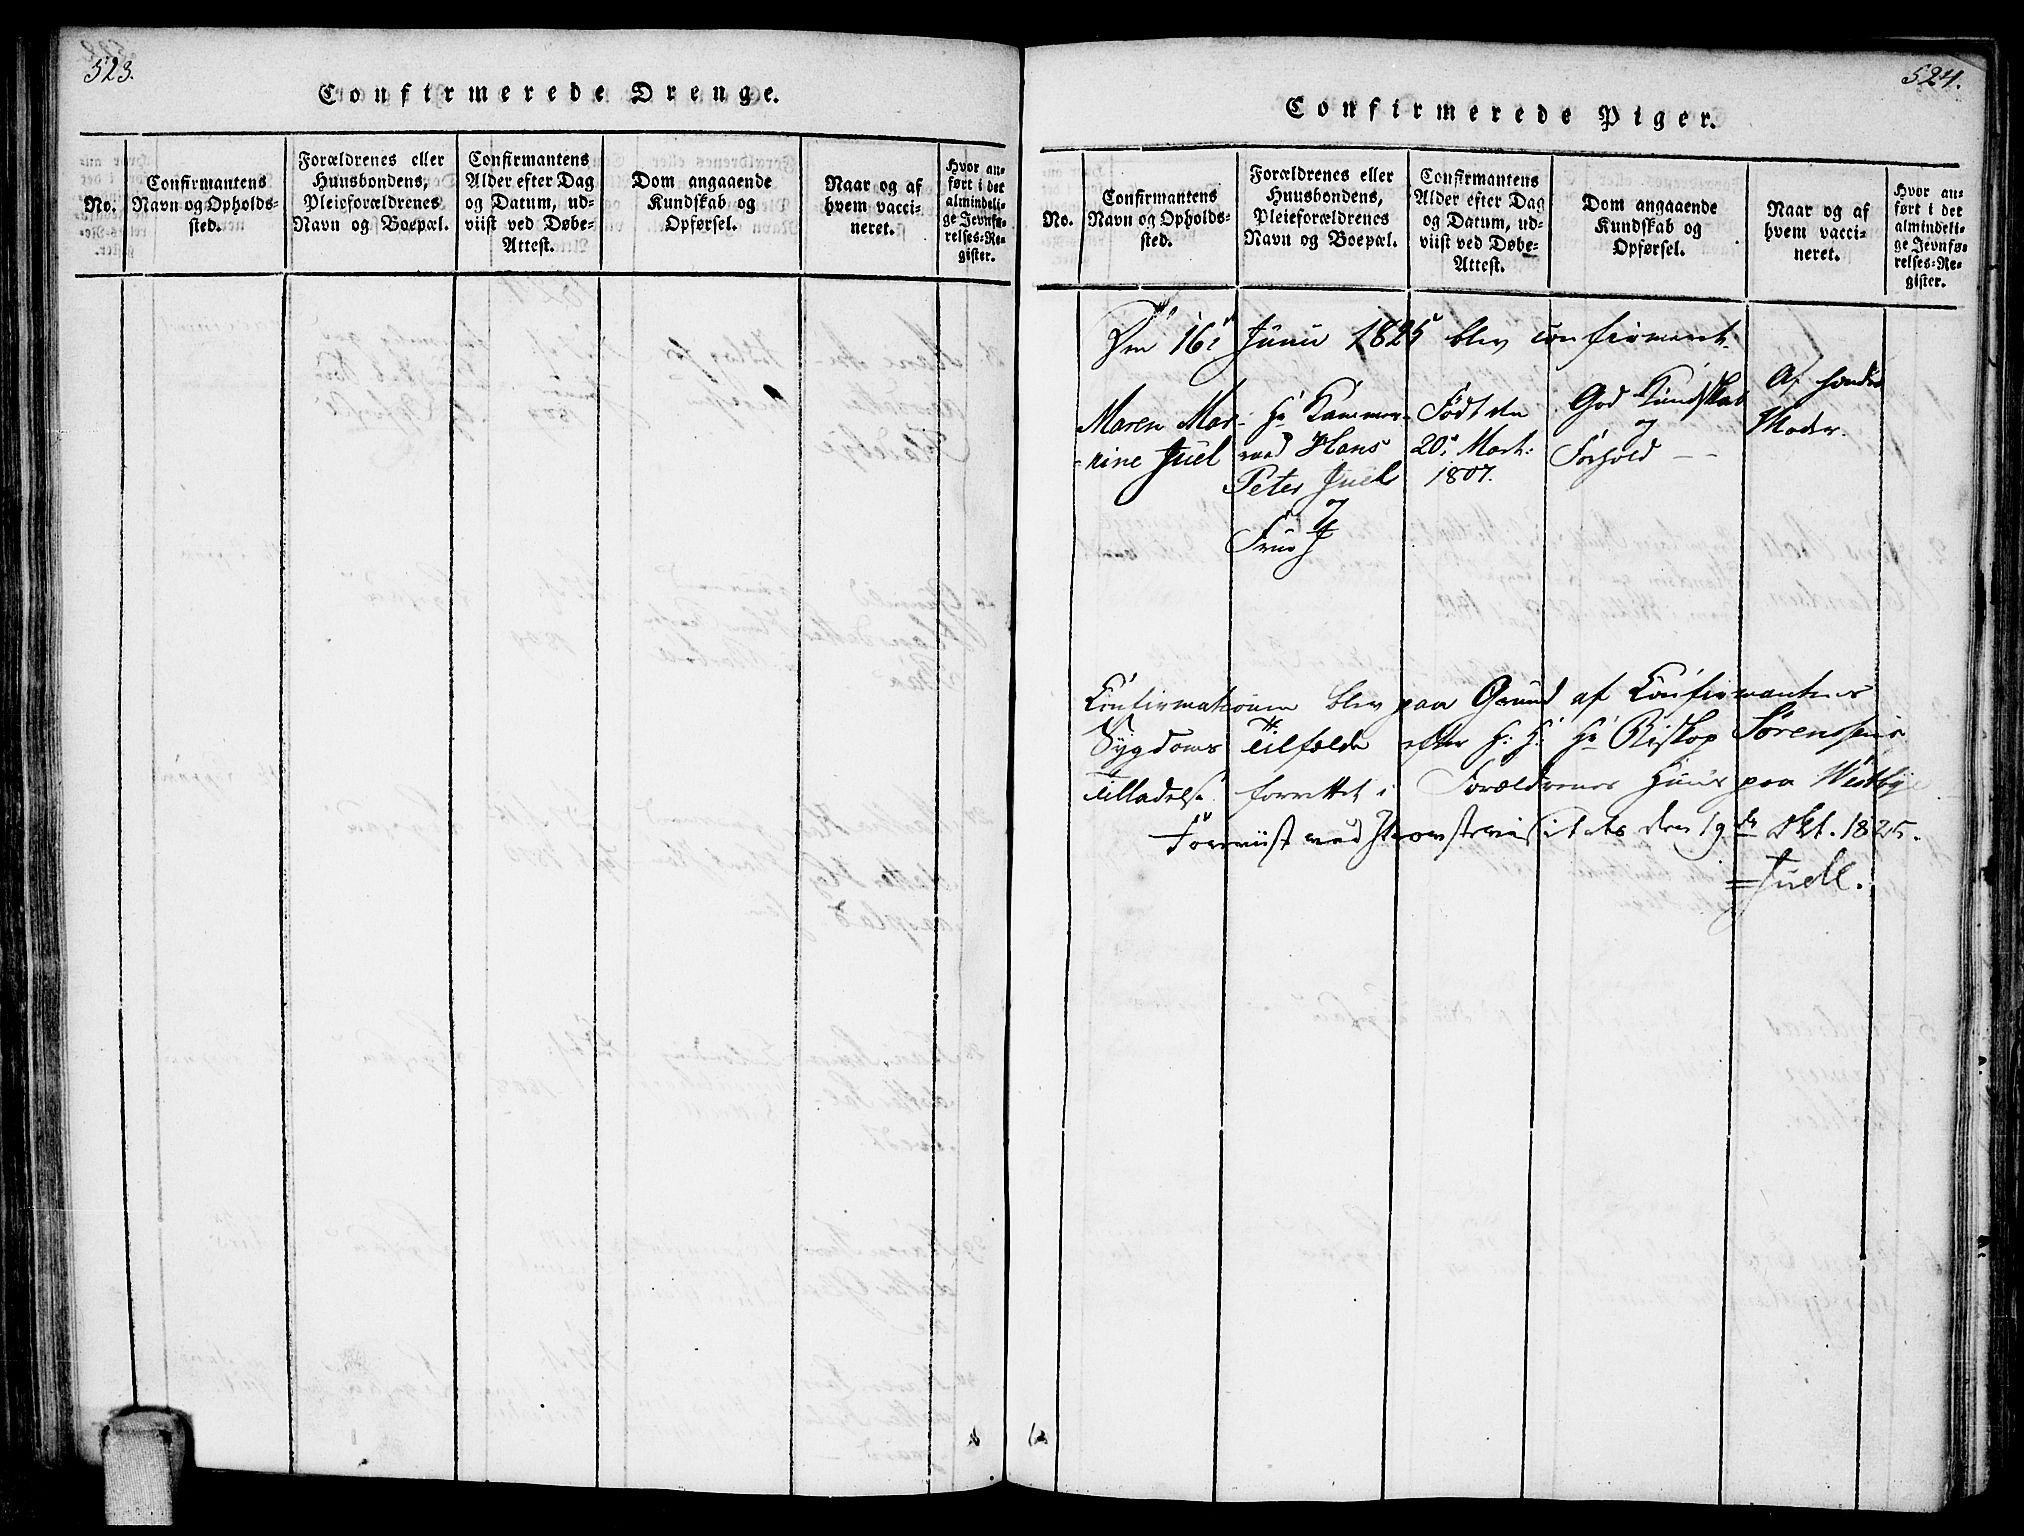 523.
Confirmerede Drenge.
No.
Confirmantens
Navn og Opholds-
sted.
Forældrenes eller
Huusbondens,
Pleieforældrenes
Navn og Boepæl.
Confirmantens
Alder efter Dag
og Datum, ud-
viist ved Døbe-
Attest.
Dom angaaende
Kundskab og
Opførsel.
Naar og af
hvem vacci-
neret.
Hvor an-
ført i det
almindeli-
ge Jevnfø-
relses-Re-
gister.
524.
Confirmerede Piger.
No.
Confirmantens
Navn og Opholds-
sted.
Forældrenes eller
Huusbondens,
Pleieforældrenes
Navn og Boepæl.
Confirmantens
Alder efter Dag
og Datum, ud-
viist ved Døbe-
Attest.
Dom angaaende
Kundskab og
Opførsel.
Naar og af
hvem vacci-
neret.
Hvor an-
ført i det
almindeli-
ge Jevnfø-
relses-Re-
gister.
Den 16 Junii 1825 blev confirmeret
Maren Mar-
rine Juel
Hr Kammer-
raad Hans
Peter Juel
og
Frue
Født den
20 Mart:
1807.
God Kundskab
og
Forhold
Af hendes
Moder.
Confirmationen blev paa Grund af Confirmantens
Sygdoms Tilfælde efter H: H: Hr Biskop Sørensens
Tilladelse forrettet i Forældrenes Huus paa Westbye
Foreviist ved den 19de Okt. 1825.
Juell.